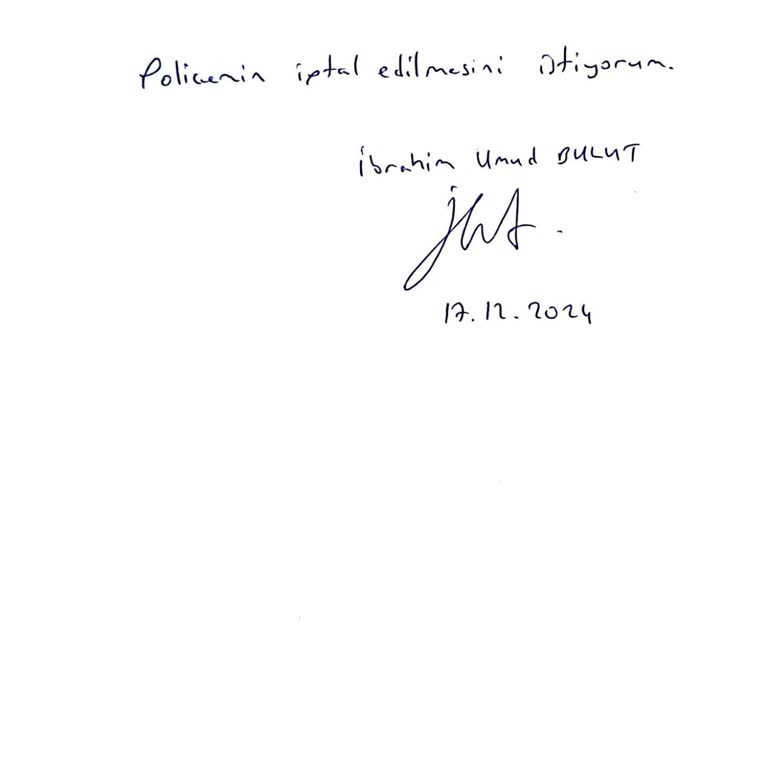 Policenin iptal edilmesini istiyorum.
İbrahim Umud BULUT
17.12.2024